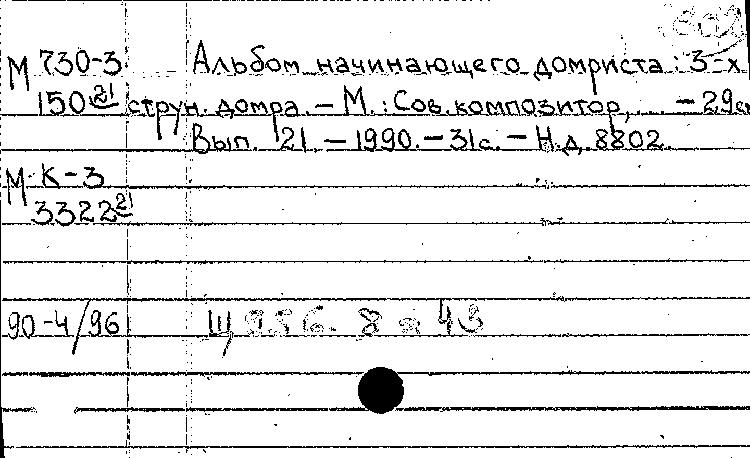 М 730-3 Альбом начинающего домриста: 3-х
150 21 струн. домра. - М.: Сов. композитор, ... - 29см
Вып. 21. - 1990. - 31с. - Н.д. 8802.
М К-3
3322 21
90-4/96 Щ 956. 8 я 43